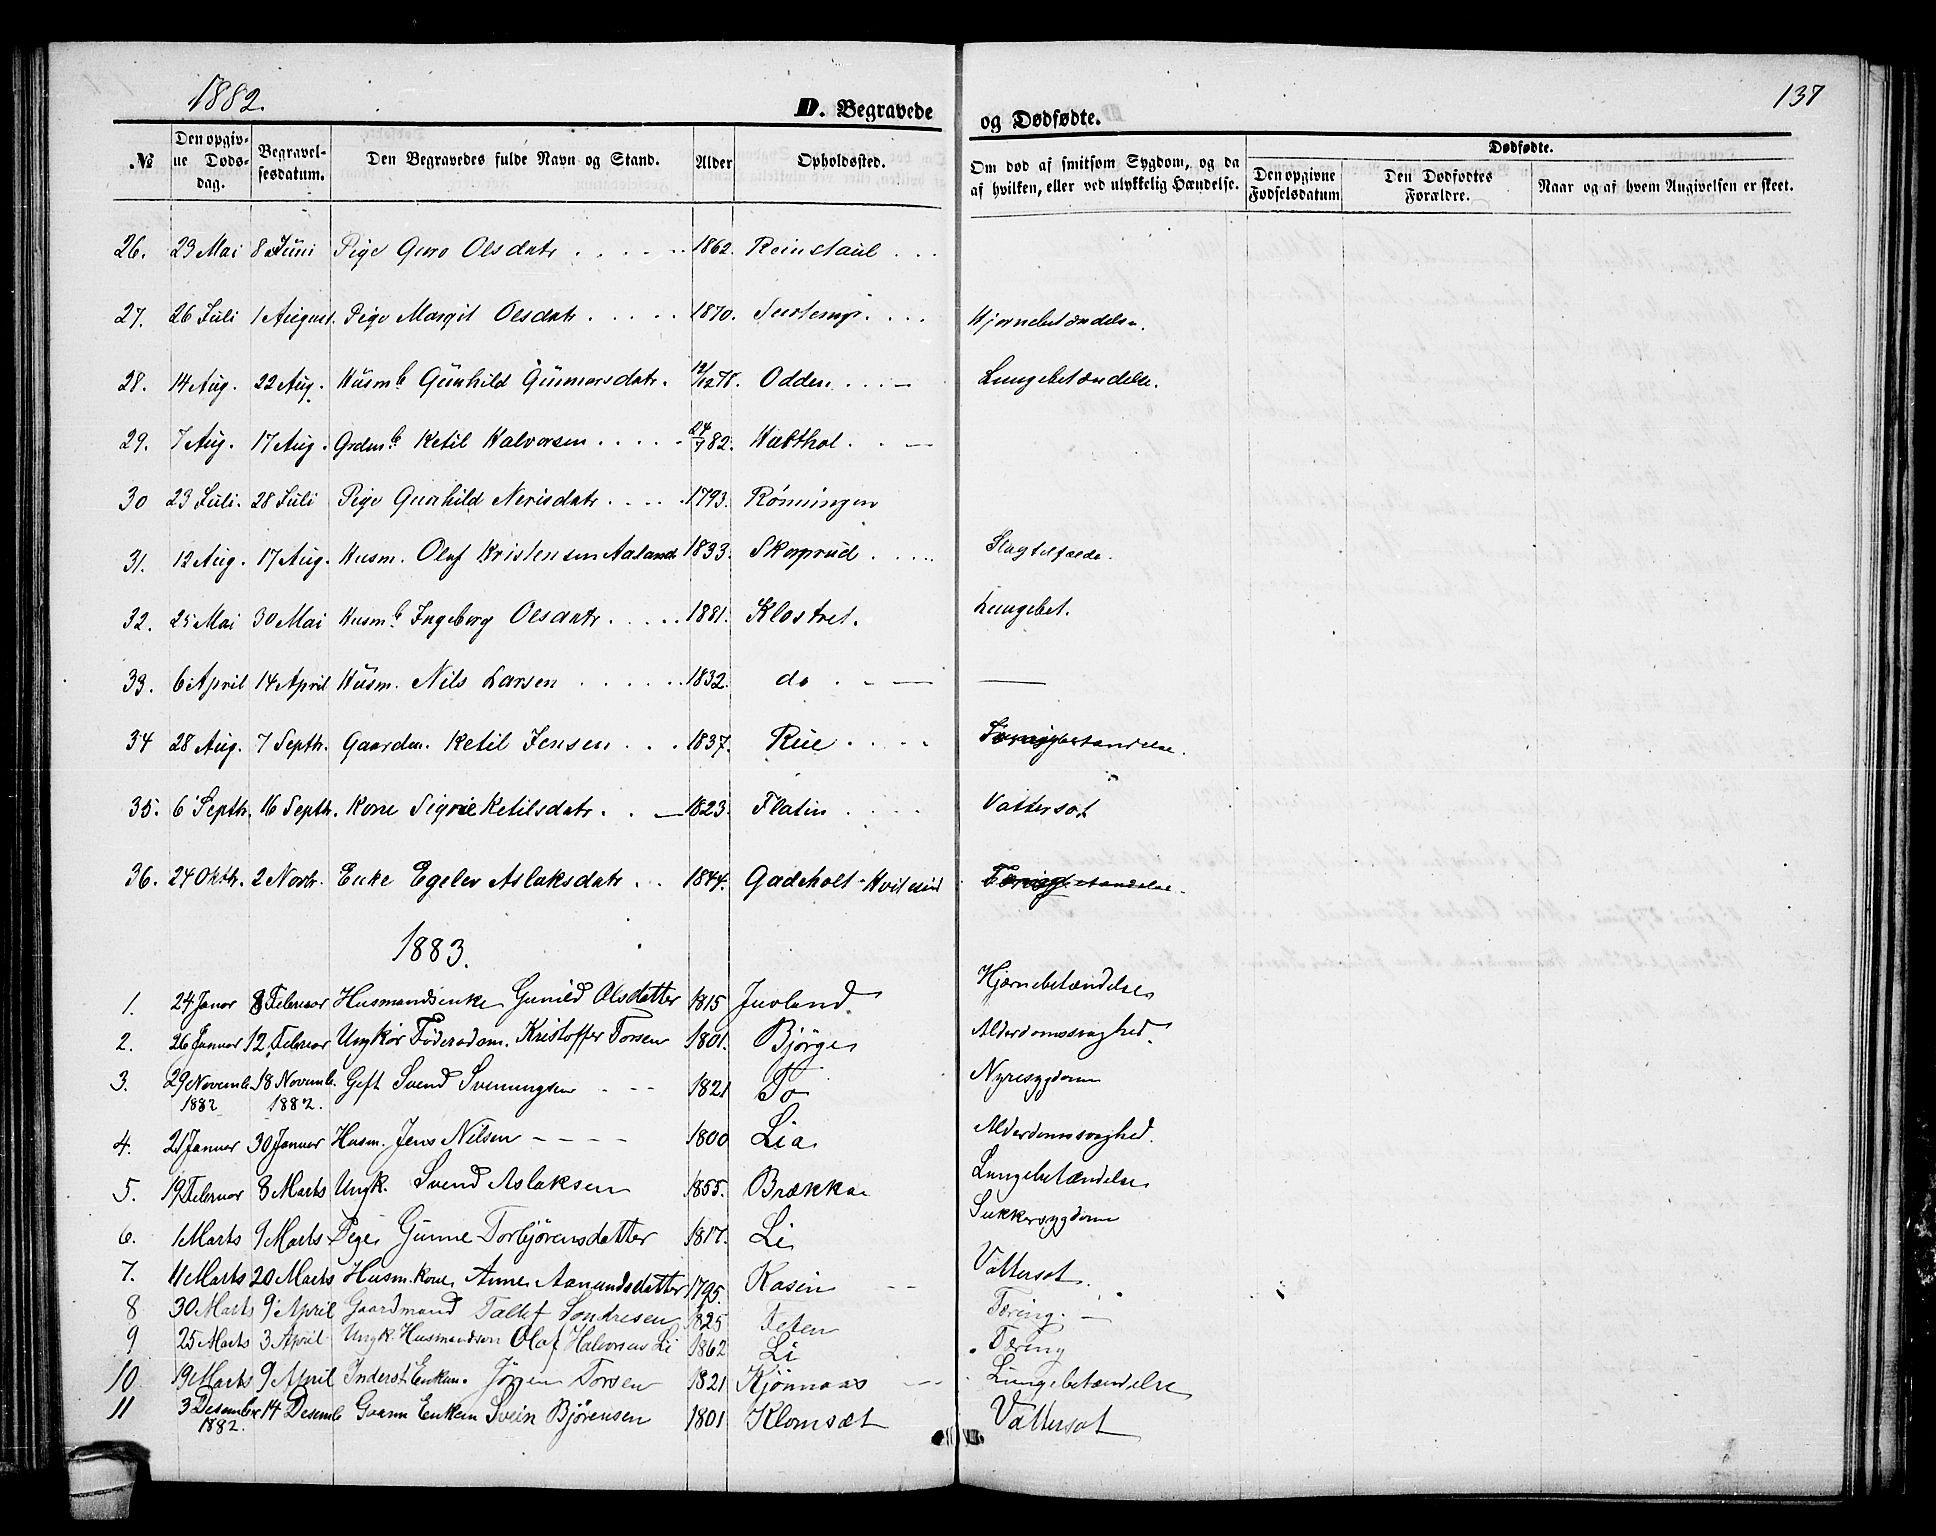 1882.
D. Begravede
og Dødfødte.
137
№ Den opgivne Dødsdag. Begravelsesdatum. Den Begravedes fulde Navn og Stand. Alder Opholdssted. Om død af smitsom Sygdom, og da af hvilken, eller ved ulykkelig Hændelse. Dødfødte. Den opgivne Fødselsdatum Den Dødfødtes Forældre. Naar og af hvem Angivelsen er skeet.
26. 23 Mai 8 Juni Pige Guro Olsdatr 1862. Reinstaul
27. 26 Juli 1 August. Pige Margit Olsdatr 1870. Hjernebetændelse.
28. 14 Aug. 22 Aug. Husmb Gunhild Gunnarsdatr. Odden Lungebetændelse.
29. 7 Aug. 17 Aug. Ketil Halvorsen 24/7 82.
30 23 Juli. 28 Juli Pige Gunhild Nerisdatr 1793. Rönningen
31. 12 Aug. 17 Aug. Husm. Olaf Kristensen Aaland 1833. Skoprud Slagtilfælde.
32. 25 Mai 30 Mai Husmb Ingeborg Olsdatr 1881. Klostret. Lungebet.
33. 6 April 14 April Husm. Nils Larsen 1832. do —
34 28 Aug. 7 Septh. Gaardm. Ketil Jensen 1837. Rue
35. 6 Septh. 16 Septh. Kone Sigrie Ketilsdatr. 1823. Flatin Vattersot
36. 24 Oktr. 2 Novbr. Enke Egelev Aslaksdatr 1844. Gadeholt - Hvitesid
1883.
1. 24 Januar 8 Februar Husmandsenke Gunild Olsdatter 1815 Juvland. Hjærnebetændelse
2. 26 Januar 12 Februar Ungkar Föderadsm. Kristoffer Torsen 1801. Björge Alderdomssvaghed.
3. 29 Novemb. 1882 18 Novemb. 1882. Gift Svend Svenungsen 1821 To Nyresygdom
4. 21 Januar 30 Januar Husm. Jens Nilsen 1800 Lia Alderdomssvaghed.
5. 19 Februar 3 Marts Ungk. Svend Aslaksen 1855. Brækka Lungebetændelse
6. 1 Marts 9 Marts Pige Gunne Torbjörensdatter 1817. Li Sukkersygdom
7. 11 Marts 20 Marts Husm. kone Anne Aanundsdatter 1795. Kasin Vattersot.
8 30 Marts 9 April Gaardmand Tallef Sondresen 1825 Teten Tæring.
9 25 Marts 3 April Ungk. Husmandssön Olaf Halvorsen Li 1862 Li Tæring
10 19 Marts 9 April Inderst Enkem. Jörgen Torsen 1821 Kjönnaas Lungebetændelse
11 3 Desember 1882. 14 Desemb Gaarm Enkem Svein Björensen 1801 Klomsæt Vattersot